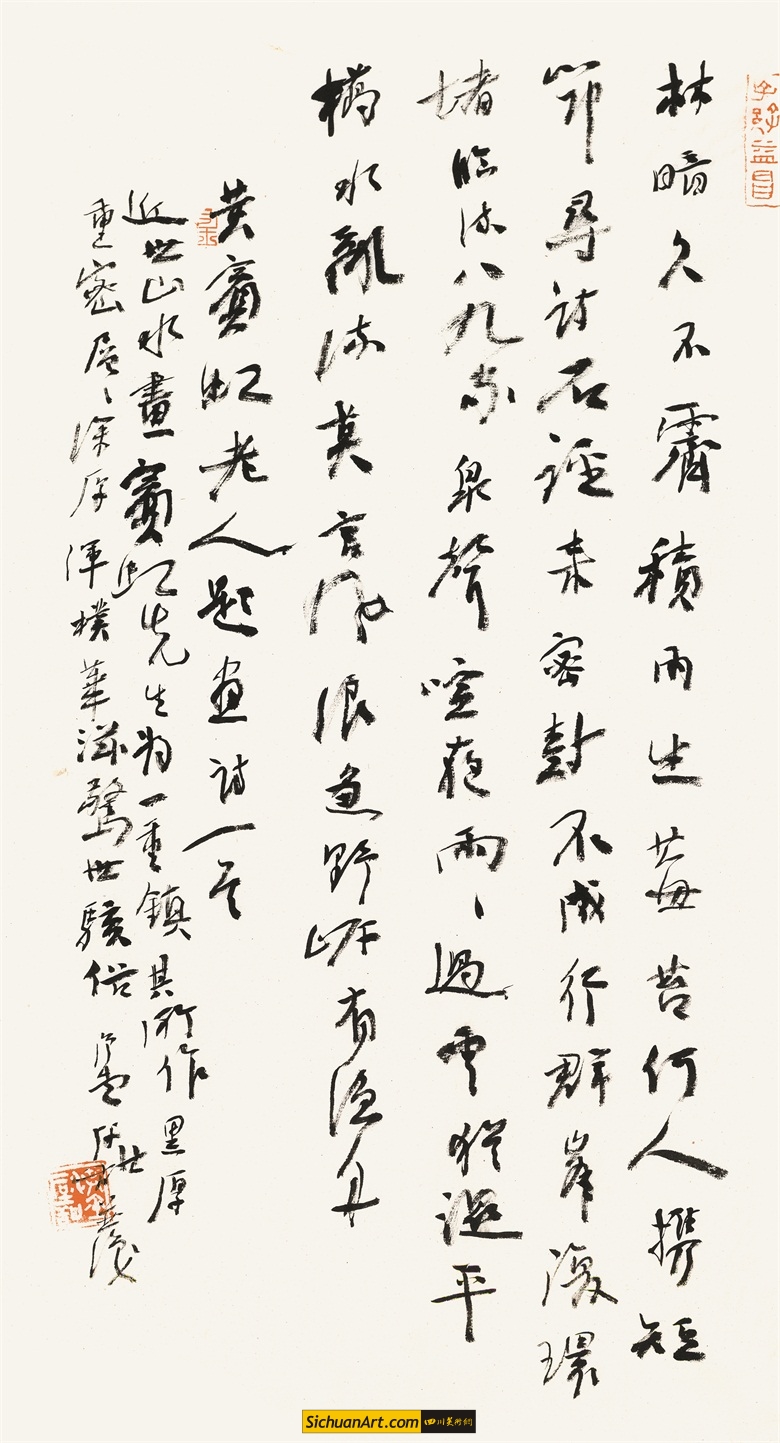 林暗久不霽積雨生莓苔何人攜短
筇尋詩石
徑未密封不成行群峯複環
堵臨流八九家泉聲喧夜雨雨過雲猶溼平
橋水亂流莫言風浪急野岸有漁舟
黃賓虹老人題畫詩一首
近世山水畫賓虹先生為一重鎮其所作黑厚
重密層層深厚渾樸華滋驚世駭俗
SichuanArt.com 四川美術網